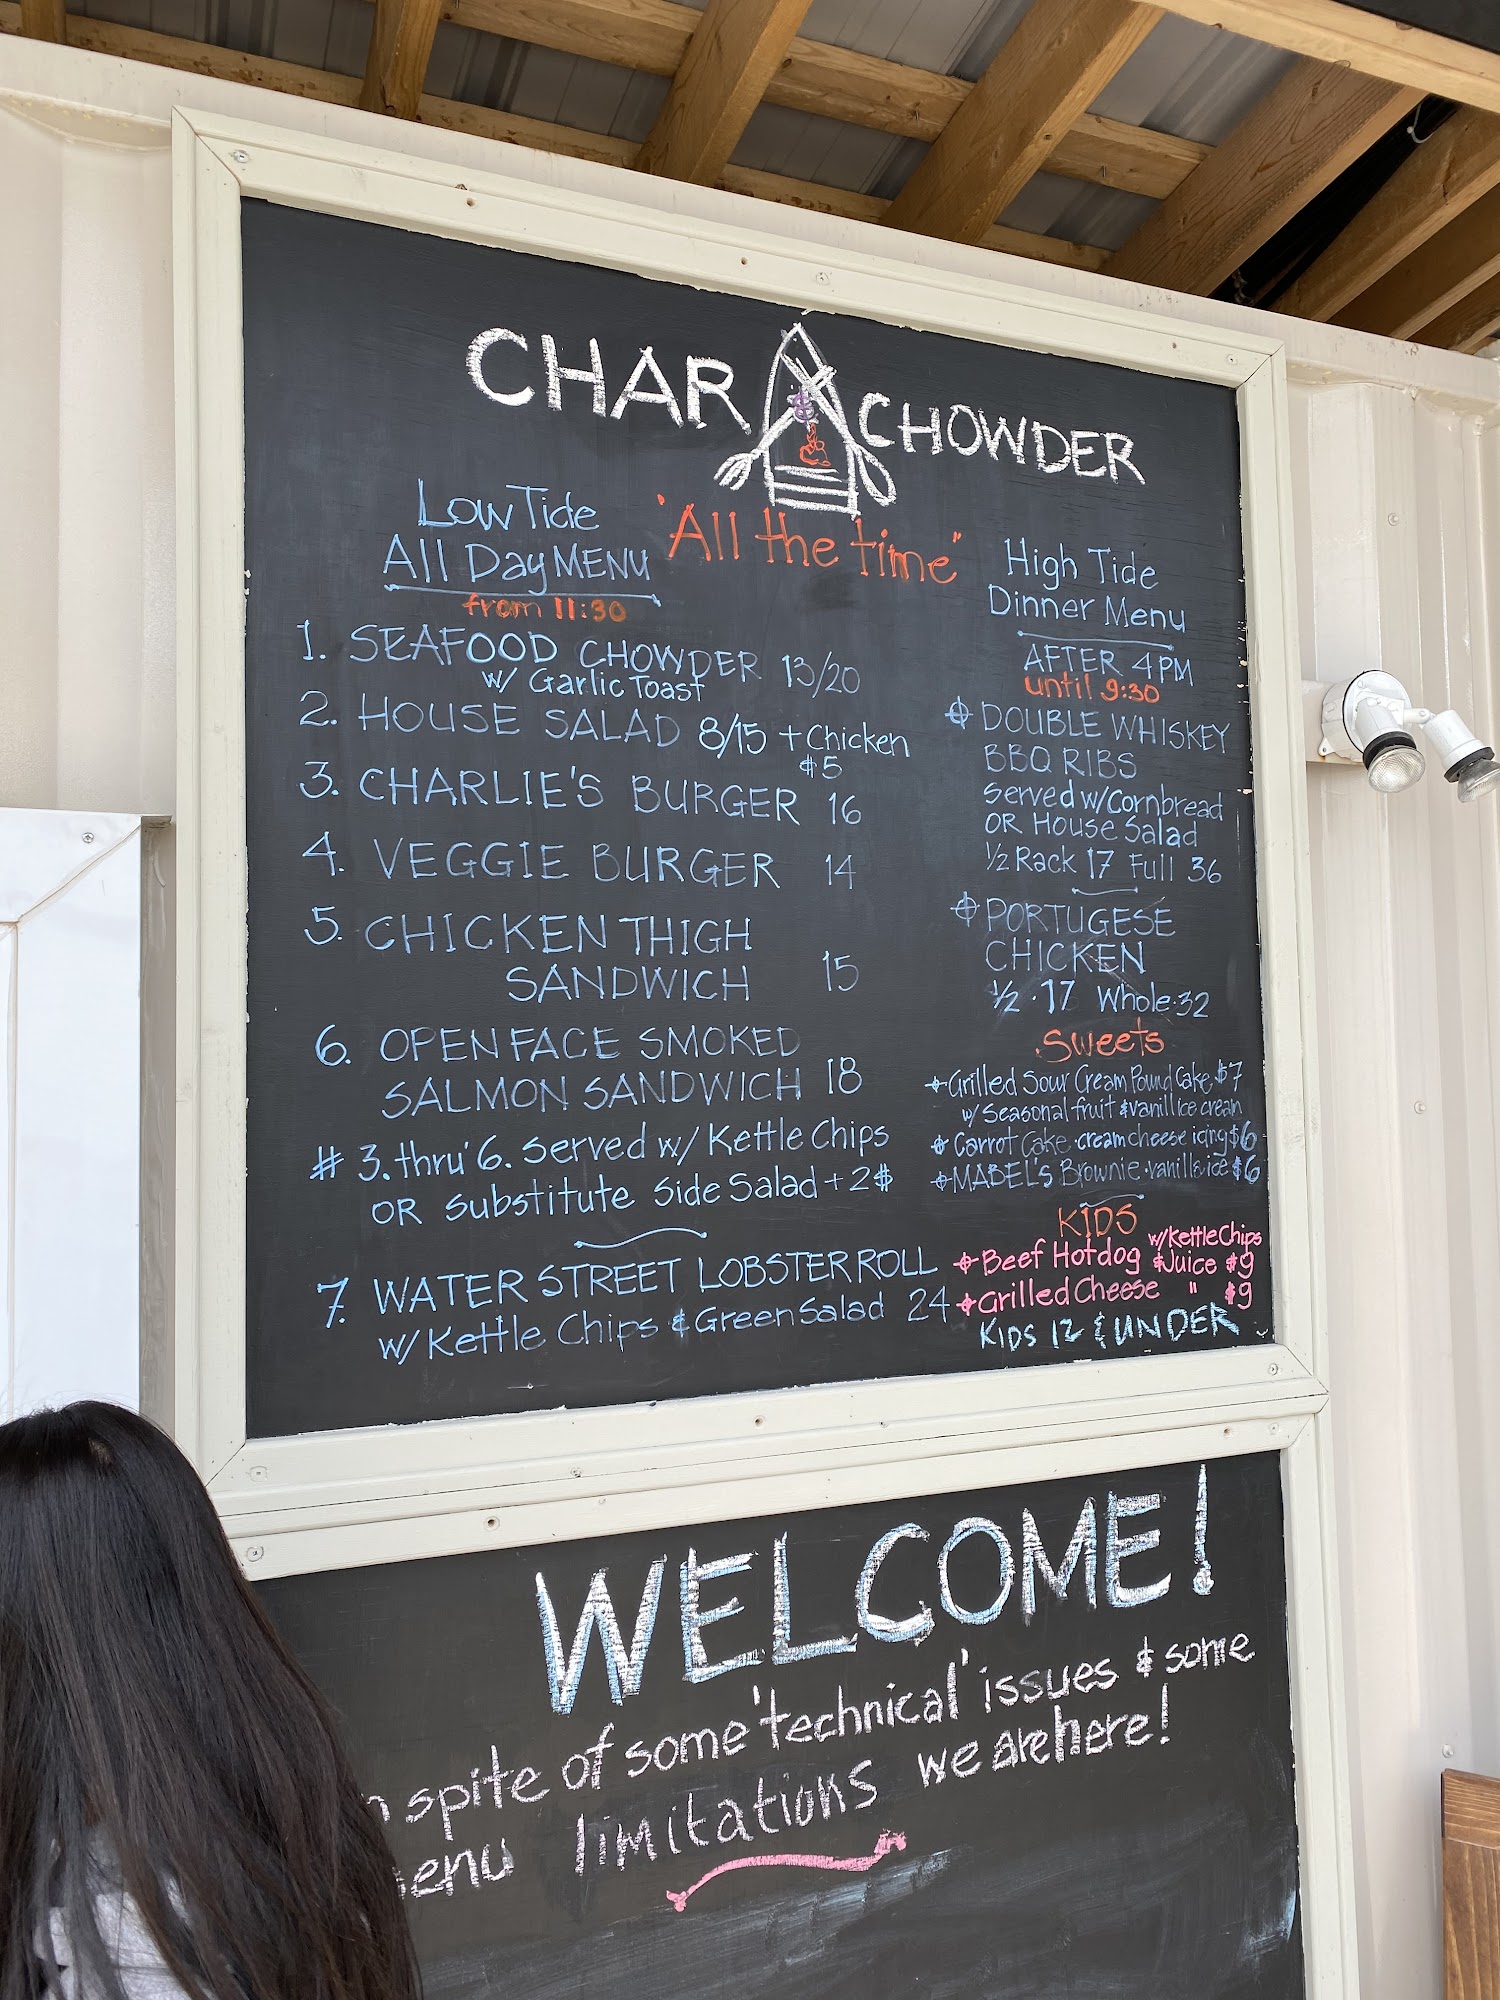 CHAR CHOWDER
"All the time"
Low Tide
All Day MENU
from 11:30
1. SEAFOOD CHOWDER 13/20
w/ Garlic Toast
2. HOUSE SALAD 8/15 + Chicken
$5
3. CHARLIE'S BURGER 16
4. VEGGIE BURGER 14
5. CHICKEN THIGH
SANDWICH 15
6. OPEN FACE SMOKED
SALMON SANDWICH 18
# 3. thru' 6. served w/ Kettle Chips
OR substitute Side Salad + 2$
7. WATER STREET LOBSTER ROLL
w/ Kettle Chips & Green Salad 24
High Tide
Dinner Menu
AFTER 4PM
until 9:30
DOUBLE WHISKEY
BBQ RIBS
served w/ Cornbread
OR House Salad
1/2 Rack 17 Full 36
PORTUGESE
CHICKEN
1/2 · 17 Whole · 32
Sweets
Grilled Sour Cream Pound Cake $7
w/ Seasonal fruit & vanill ice cream
Carrot Cake · cream cheese icing $6
MABEL'S Brownie · vanilla ice $6
KIDS
w/ Kettle Chips
Beef Hotdog & Juice $9
Grilled Cheese " $9
KIDS 12 & UNDER
WELCOME!
spite of some 'technical' issues & some
limitations we are here!